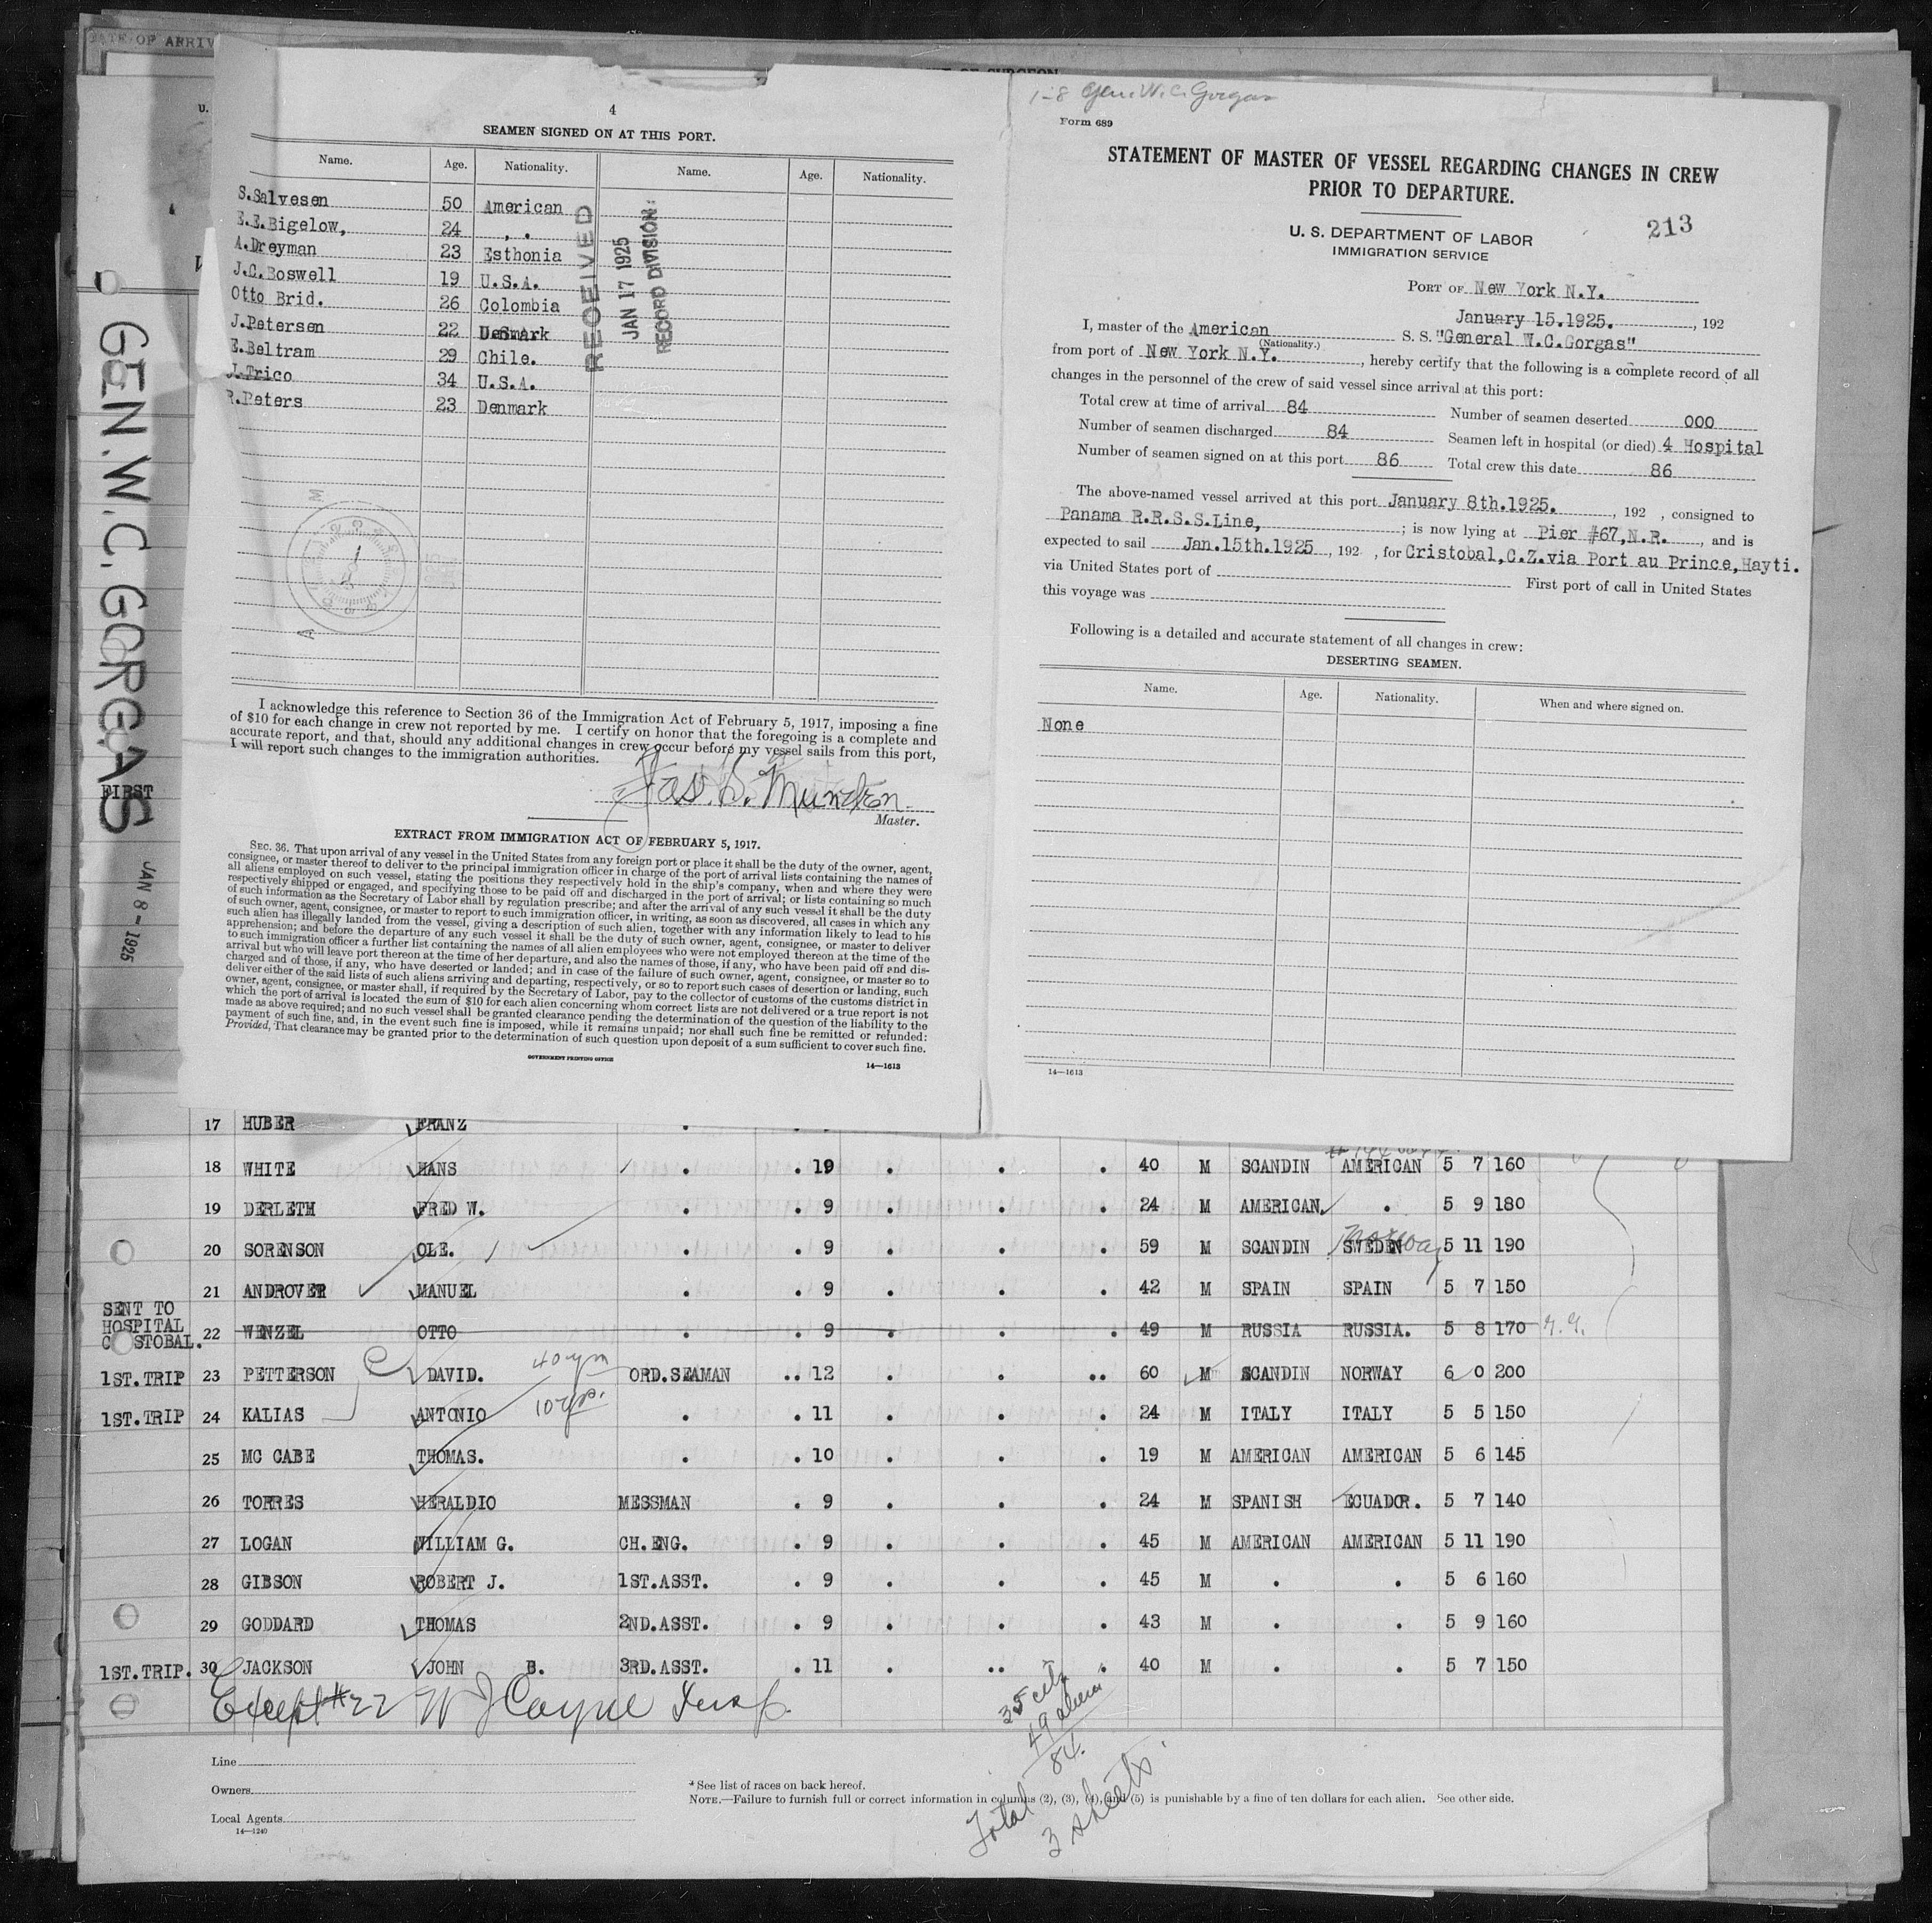 DATE OF ARRIV
OF SURGEON
U.
4
SEAMEN SIGNED ON AT THIS PORT.
Name. Age. Nationality. Name. Age. Nationality.
S.Salvesen 50 American
E.E.Bigelow, 24 , .
A.Dreyman 23 Esthonia
J.C.Boswell 19 U.S.A.
Otto Brid. 26 Colombia
J.Petersen 22 Denmark
E.Beltram 29 Chile.
J.Trico 34 U.S.A.
R.Peters 23 Denmark
RECEIVED
JAN 17 1925
RECORD DIVISION:
I acknowledge this reference to Section 36 of the Immigration Act of February 5, 1917, imposing a fine
of $10 for each change in crew not reported by me. I certify on honor that the foregoing is a complete and
accurate report, and that, should any additional changes in crew occur before my vessel sails from this port,
I will report such changes to the immigration authorities.
Jas. B. Mundon
Master.
EXTRACT FROM IMMIGRATION ACT OF FEBRUARY 5, 1917.
SEC. 36. That upon arrival of any vessel in the United States from any foreign port or place it shall be the duty of the owner, agent,
consignee, or master thereof to deliver to the principal immigration officer in charge of the port of arrival lists containing the names of
all aliens employed on such vessel, stating the positions they respectively hold in the ship's company, when and where they were
respectively shipped or engaged, and specifying those to be paid off and discharged in the port of arrival; or lists containing so much
of such information as the Secretary of Labor shall by regulation prescribe; and after the arrival of any such vessel it shall be the duty
of such owner, agent, consignee, or master to report to such immigration officer, in writing, as soon as discovered, all cases in which any
such alien has illegally landed from the vessel, giving a description of such alien, together with any information likely to lead to his
apprehension; and before the departure of any such vessel it shall be the duty of such owner, agent, consignee, or master to deliver
to such immigration officer a further list containing the names of all alien employees who were not employed thereon at the time of the
arrival but who will leave port thereon at the time of her departure, and also the names of those, if any, who have been paid off and dis-
charged and of those, if any, who have deserted or landed; and in case of the failure of such owner, agent, consignee, or master so to
deliver either of the said lists of such aliens arriving and departing, respectively, or so to report such cases of desertion or landing, such
owner, agent, consignee, or master shall, if required by the Secretary of Labor, pay to the collector of customs of the customs district in
which the port of arrival is located the sum of $10 for each alien concerning whom correct lists are not delivered or a true report is not
made as above required; and no such vessel shall be granted clearance pending the determination of the question of the liability to the
payment of such fine, and, in the event such fine is imposed, while it remains unpaid; nor shall such fine be remitted or refunded:
Provided, That clearance may be granted prior to the determination of such question upon deposit of a sum sufficient to cover such fine.
GOVERNMENT PRINTING OFFICE
14—1613
1-8 Gen. W. C. Gorgas
Form 689
STATEMENT OF MASTER OF VESSEL REGARDING CHANGES IN CREW
PRIOR TO DEPARTURE.
213
U. S. DEPARTMENT OF LABOR
IMMIGRATION SERVICE
PORT OF New York N.Y.
January 15.1925. , 192
I, master of the American S. S. "General W.C.Gorgas"
(Nationality.)
from port of New York N.Y. , hereby certify that the following is a complete record of all
changes in the personnel of the crew of said vessel since arrival at this port:
Total crew at time of arrival 84 Number of seamen deserted 000
Number of seamen discharged 84 Seamen left in hospital (or died) 4 Hospital
Number of seamen signed on at this port 86 Total crew this date 86
The above-named vessel arrived at this port January 8th.1925. , 192 , consigned to
Panama R.R.S.S.Line, ; is now lying at Pier #67,N.R. , and is
expected to sail Jan.15th.1925 , 192 , for Cristobal,C.Z.via Port au Prince,Hayti.
via United States port of First port of call in United States
this voyage was
Following is a detailed and accurate statement of all changes in crew:
DESERTING SEAMEN.
Name. Age. Nationality. When and where signed on.
None
14—1613
GEN. W. C. GORGAS
FIRST
JAN 8 - 1925
17 HUBER FRANZ
18 WHITE HANS . . 19 . . . 40 M SCANDIN AMERICAN 5 7 160
19 DERLETH FRED W. . . 9 . . . 24 M AMERICAN. . 5 9 180
20 SORENSON OLE. . . 9 . . . 59 M SCANDIN SWEDEN Norway 5 11 190
21 ANDROVER MANUEL . . 9 . . . 42 M SPAIN SPAIN 5 7 150
SENT TO
HOSPITAL
C STOBAL. 22 WENZEL OTTO . . 9 . . . 49 M RUSSIA RUSSIA. 5 8 170
1ST.TRIP 23 PETTERSON DAVID. 40 ORD.SEAMAN .. 12 . . .. 60 M SCANDIN NORWAY 6 0 200
1ST.TRIP 24 KALIAS ANTONIO . . 11 . . . 24 M ITALY ITALY 5 5 150
25 MC CABE THOMAS. . . 10 . . . 19 M AMERICAN AMERICAN 5 6 145
26 TORRES HERALDIO MESSMAN . 9 . . . 24 M SPANISH ECUADOR. 5 7 140
27 LOGAN WILLIAM G. CH.ENG. . 9 . . . 45 M AMERICAN AMERICAN 5 11 190
28 GIBSON ROBERT J. 1ST.ASST. . 9 . . . 45 M . . 5 6 160
29 GODDARD THOMAS 2ND.ASST. . 9 . . . 43 M . . 5 9 160
1ST.TRIP. 30 JACKSON JOHN B. 3RD.ASST. . 11 . .. . 40 M . . 5 7 150
Except #22 W J Coyne Insp.
35 citz
49 aliens
84.
Total
3 sheets.
Line
Owners
Local Agents
14—1240
*See list of races on back hereof.
NOTE.—Failure to furnish full or correct information in columns (2), (3), (4), and (5) is punishable by a fine of ten dollars for each alien. See other side.